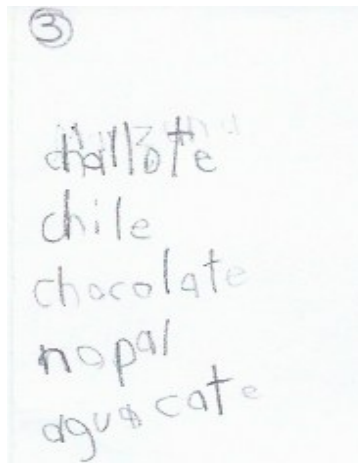 3
challote
chile
chocolate
nopal
aguacate